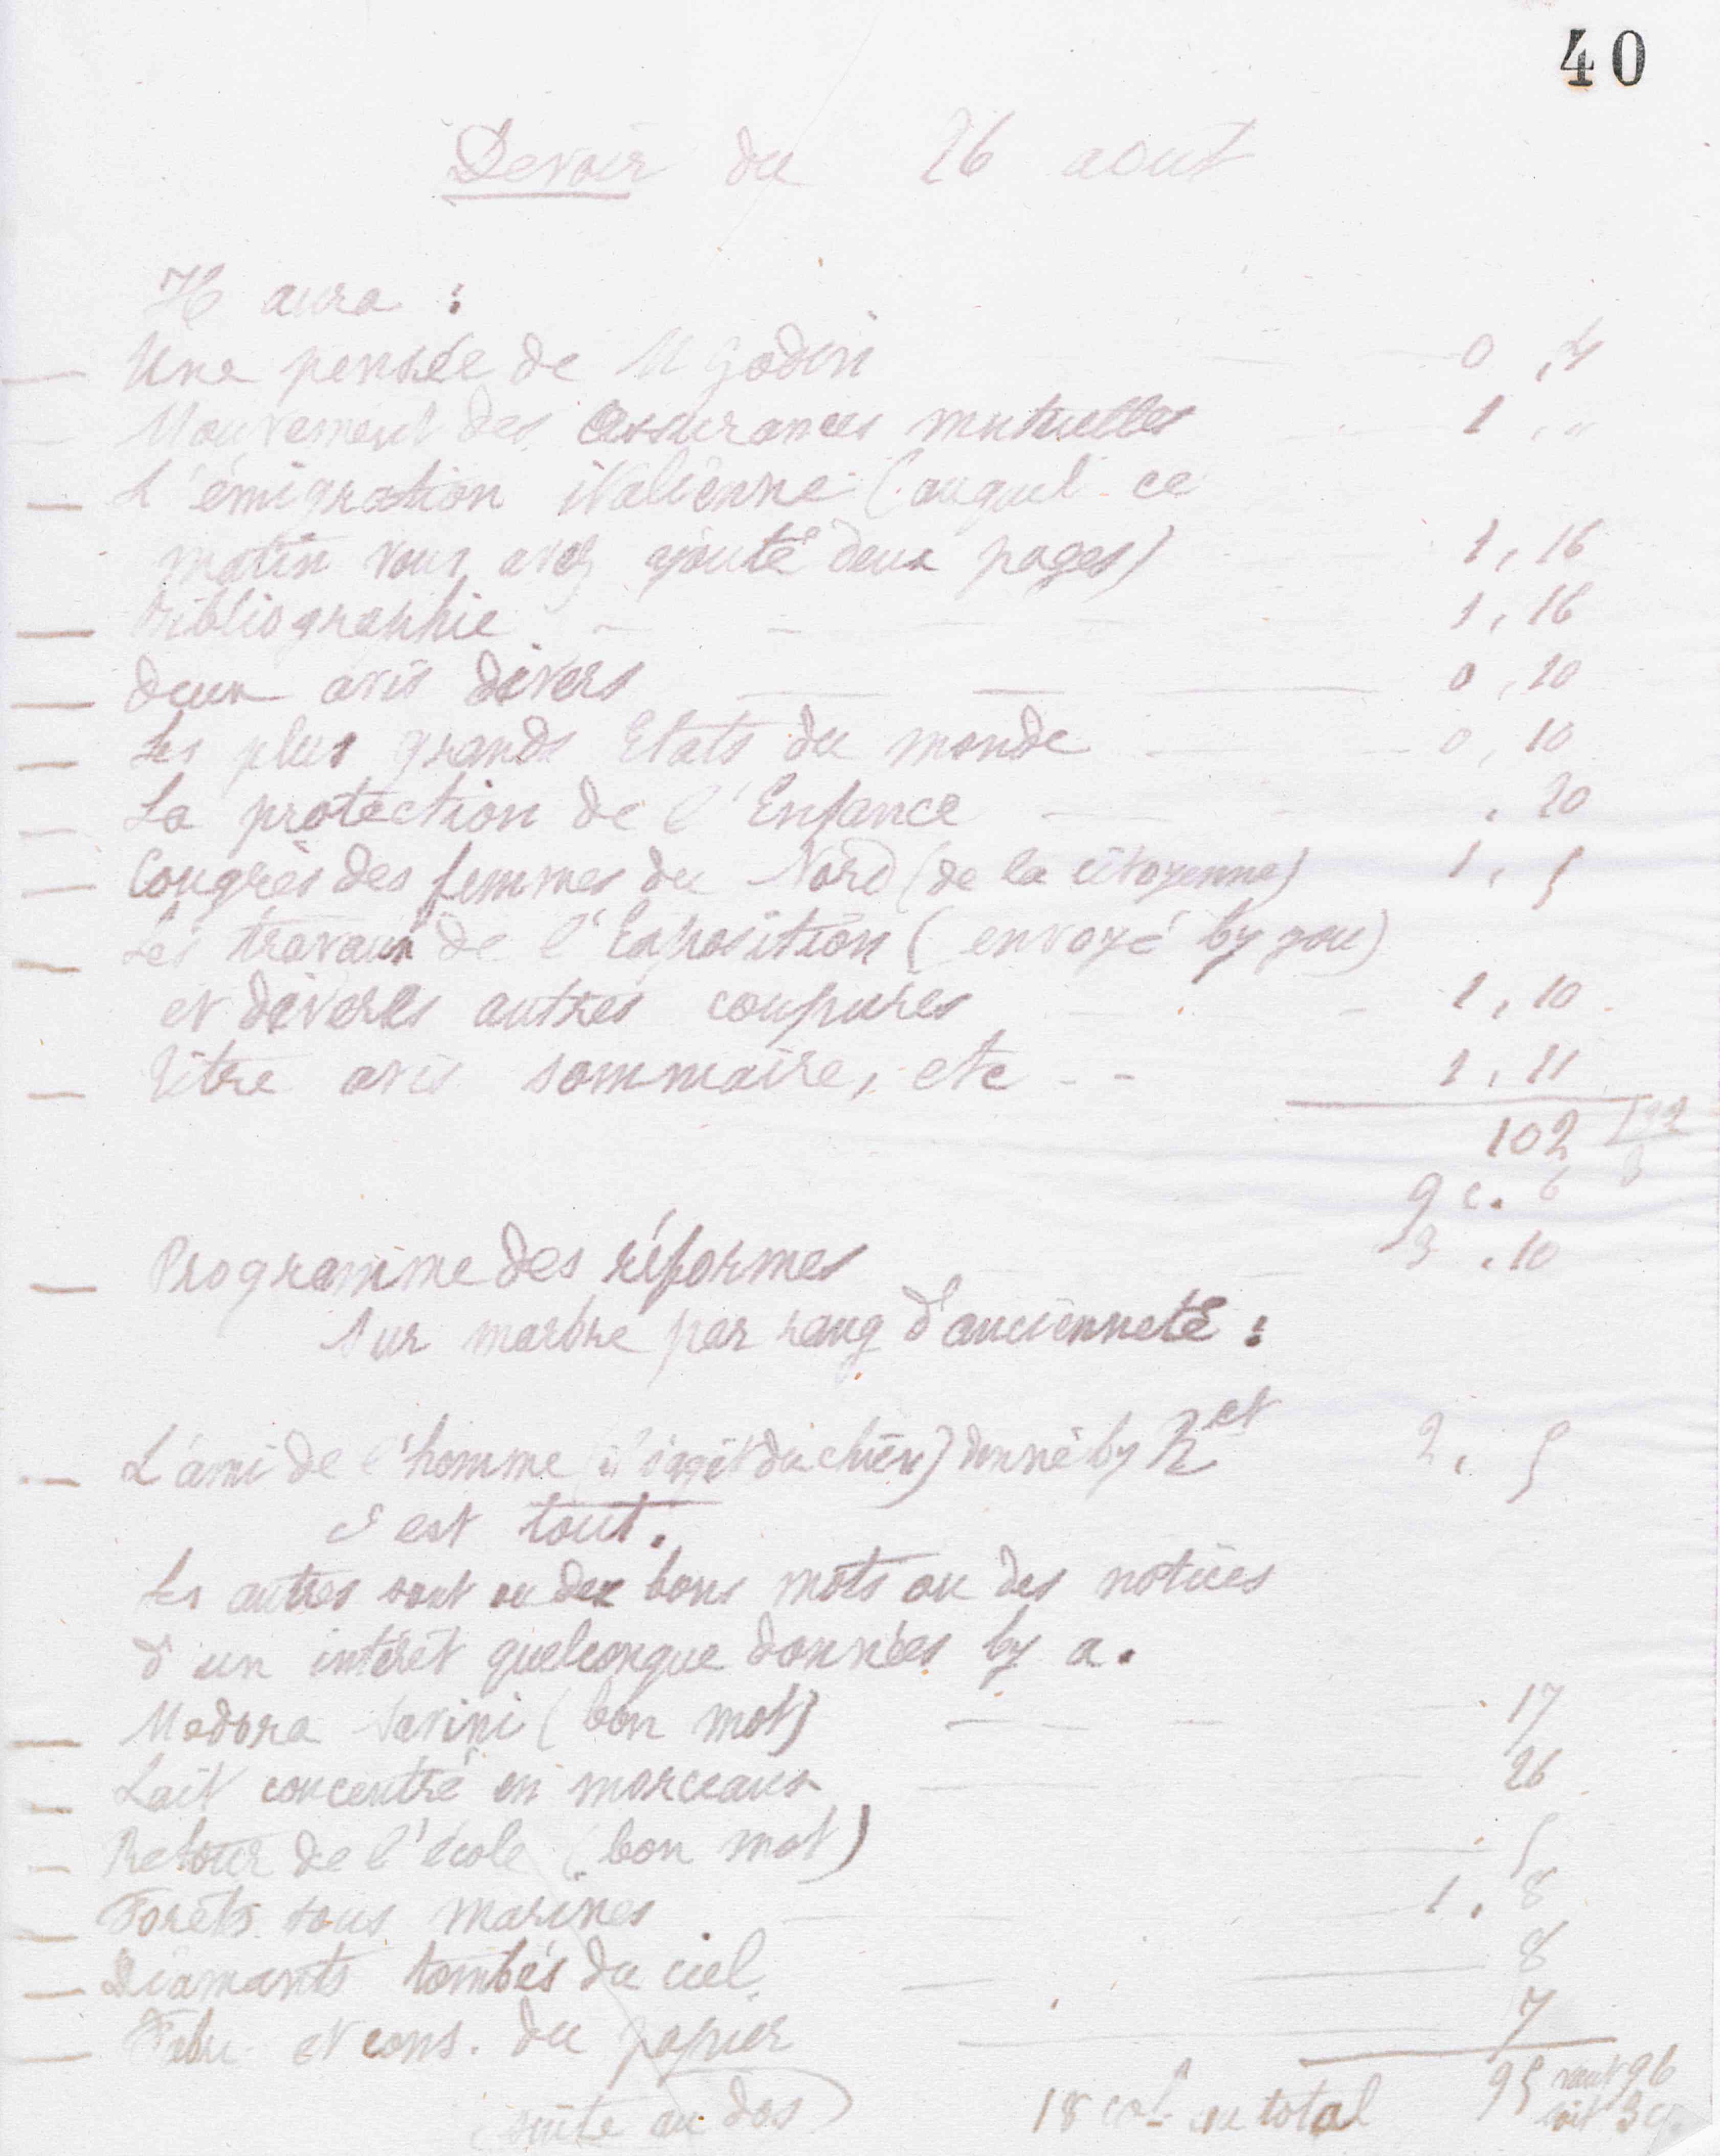 40
Devoir du 26 aout
Il aura :
— Une pensée de M Godin — 0 , 4
— Mouvement des assurances mutuelles 1 , "
— L'émigration italienne (auquel ce
matin vous avez ajouté deux pages) 1, 16
— Bibliographie - - - 1, 16
— deux avis divers — — — 0, 10
— Les plus grands Etats du monde — - 0, 10
— La protection de l'Enfance — . 20
— Congrès des femmes du Nord (de la citoyenne) 1, 5
— Les travaux de l'Exposition (envoyé by you)
et diverses autres coupures - 1, 10
— titre avis sommaire, etc - - 1, 11
102
9 c. 6
— Programme des réformes 3 . 10
Sur marbre par rang d'ancienneté :
— L'ami de l'homme (il s'agit du chien) donné by 2, 5
C'est tout.
Les autres sont ou des bons mots ou des notices
d'un intérêt quelconque données by a.
— Medora Savini (bon mot) — — — 17
— Lait concentré en morceaux — — 26
— Retour de l'école (bon mot) — 5
— Forêts sous marines — — 1. 8
— Diamants tombés du ciel — — 8
— Fabr. et cons. du papier — 7
(suite au dos) 18 col. au total 95 96
soit 3 c.